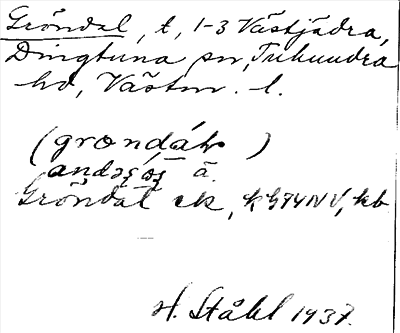 Gröndal, t, 1-3 Västjädra,
Dingtuna sn, Tuhundra
hd, Västm. l.
(grœndá )
a.
Gröndal ek, kb
H. Ståhl 1937.